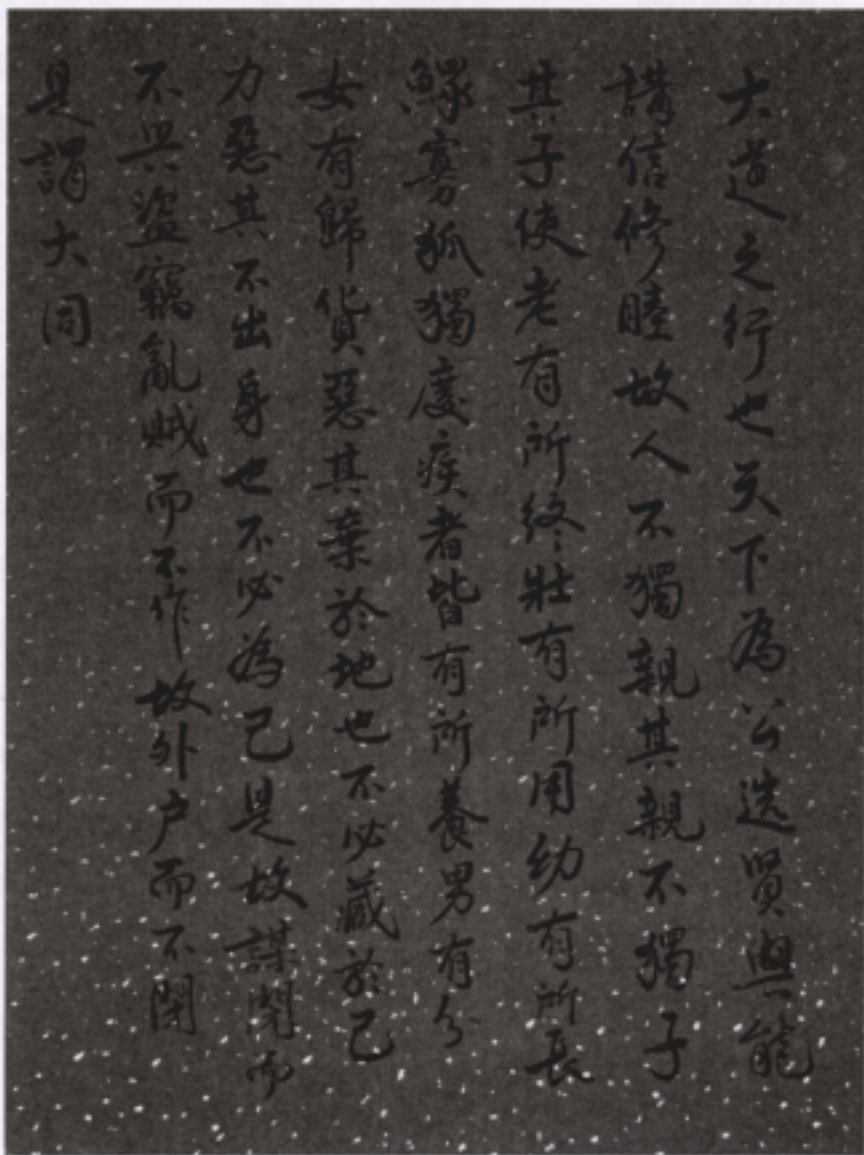 大道之行也天下為公選賢與能
講信修睦故人不獨親其親不獨子
其子使老有所終壯有所用幼有所長
鰥寡孤獨廢疾者皆有所養男有分
女有歸貨惡其棄於地也不必藏於己
力惡其不出身也不必為己是故謀閉而
不興盜竊亂賊而不作故外戶而不閉
是謂大同